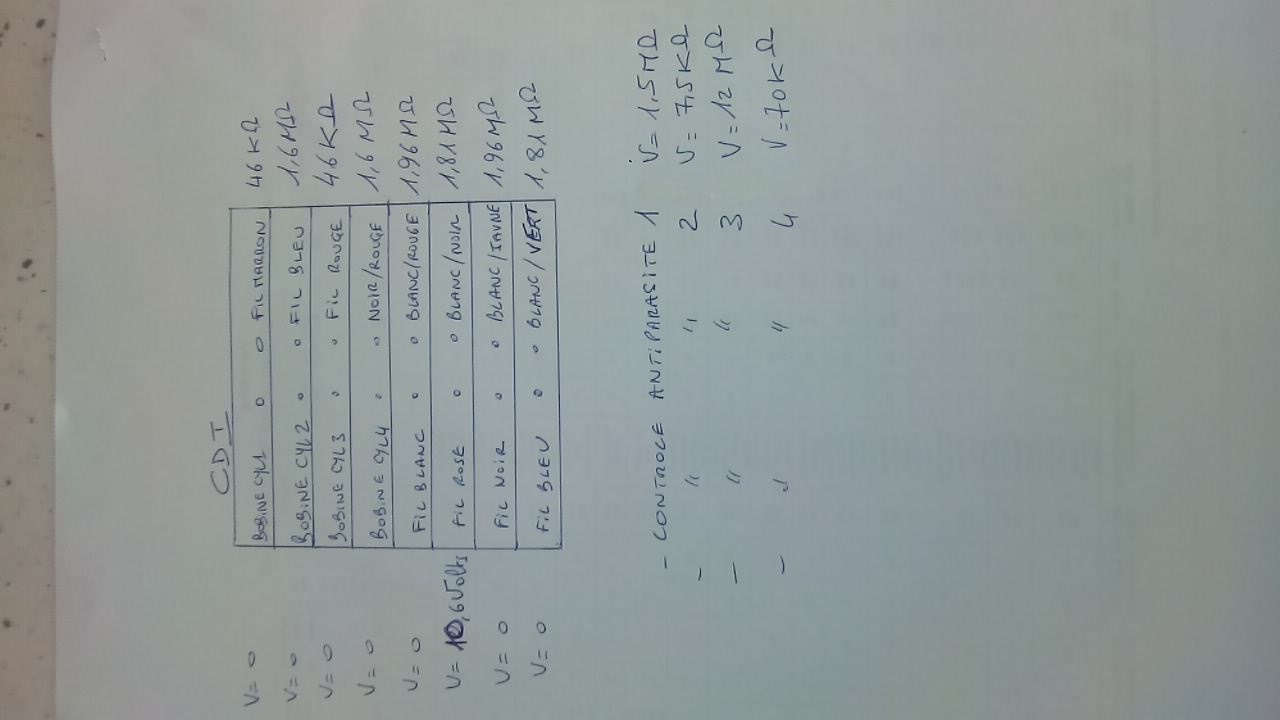 CDI
V= 0 BOBINE CYL1 o o FIL MARRON 46 KΩ
V= 0 BOBINE CYL2 o o FIL BLEU 1,6 MΩ
V= 0 BOBINE CYL3 o o FIL ROUGE 46 KΩ
V= 0 BOBINE CYL4 o o NOIR/ROUGE 1,6 MΩ
V= 0 FIL BLANC o o BLANC/ROUGE 1,96 MΩ
V= 10,6 Volts FIL ROSE o o BLANC/NOIR 1,81 MΩ
V= 0 FIL NOIR o o BLANC/JAUNE 1,96 MΩ
V= 0 FIL BLEU o o BLANC/VERT 1,81 MΩ
- CONTROLE ANTIPARASITE 1 V= 1,5 MΩ
- " " 2 V= 7,5 KΩ
- " " 3 V= 12 MΩ
- " " 4 V= 70 KΩ